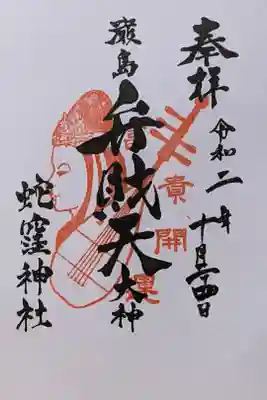 奉拝
令和二年十月二四日
巌島
弁財天
大神
蛇窪神社
貴
開
運